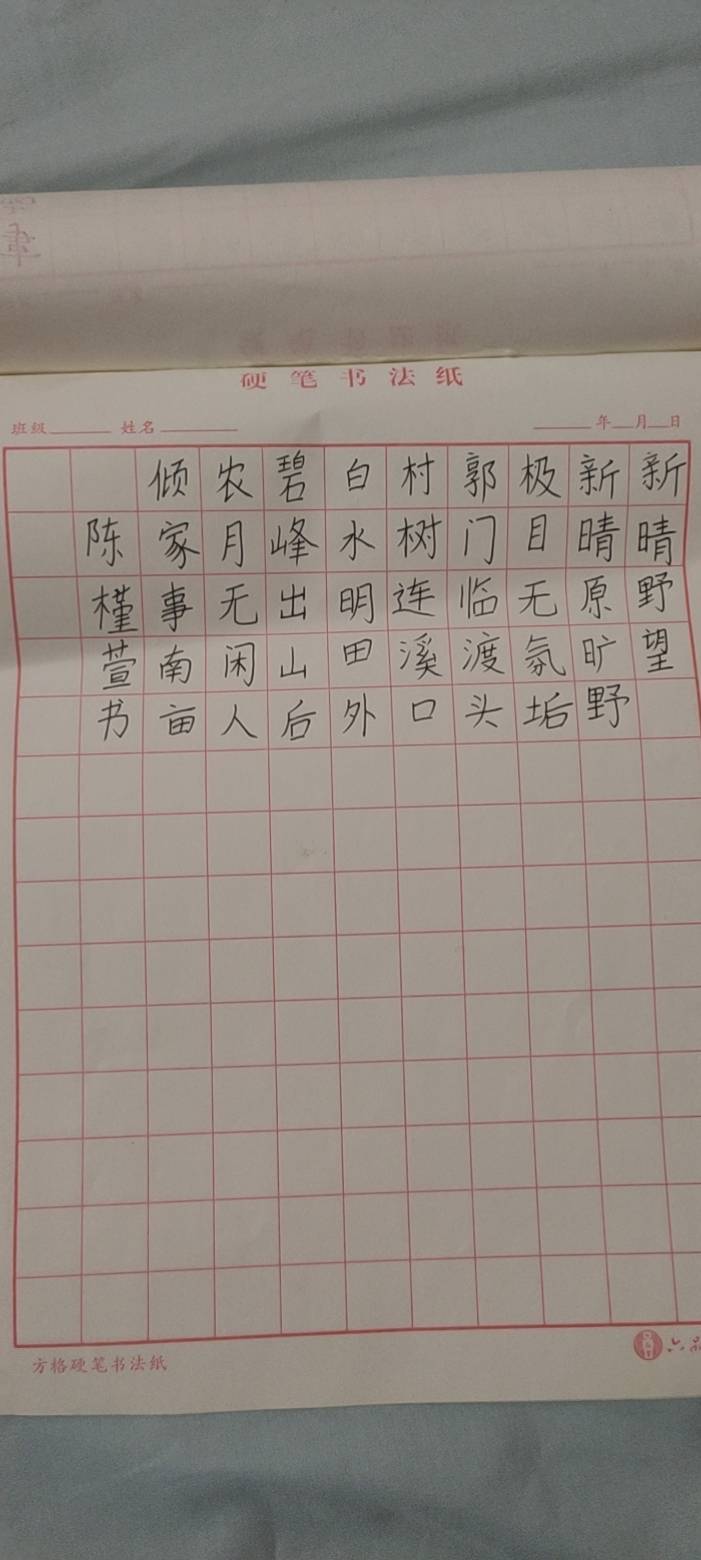 硬笔书法纸
班级 姓名 年 月 日
新晴野望
新晴原旷野
极目无氛垢
郭门临渡头
村树连溪口
白水明田外
碧峰出山后
农月无闲人
倾家事南亩
陈槿萱书
方格硬笔书法纸
六品